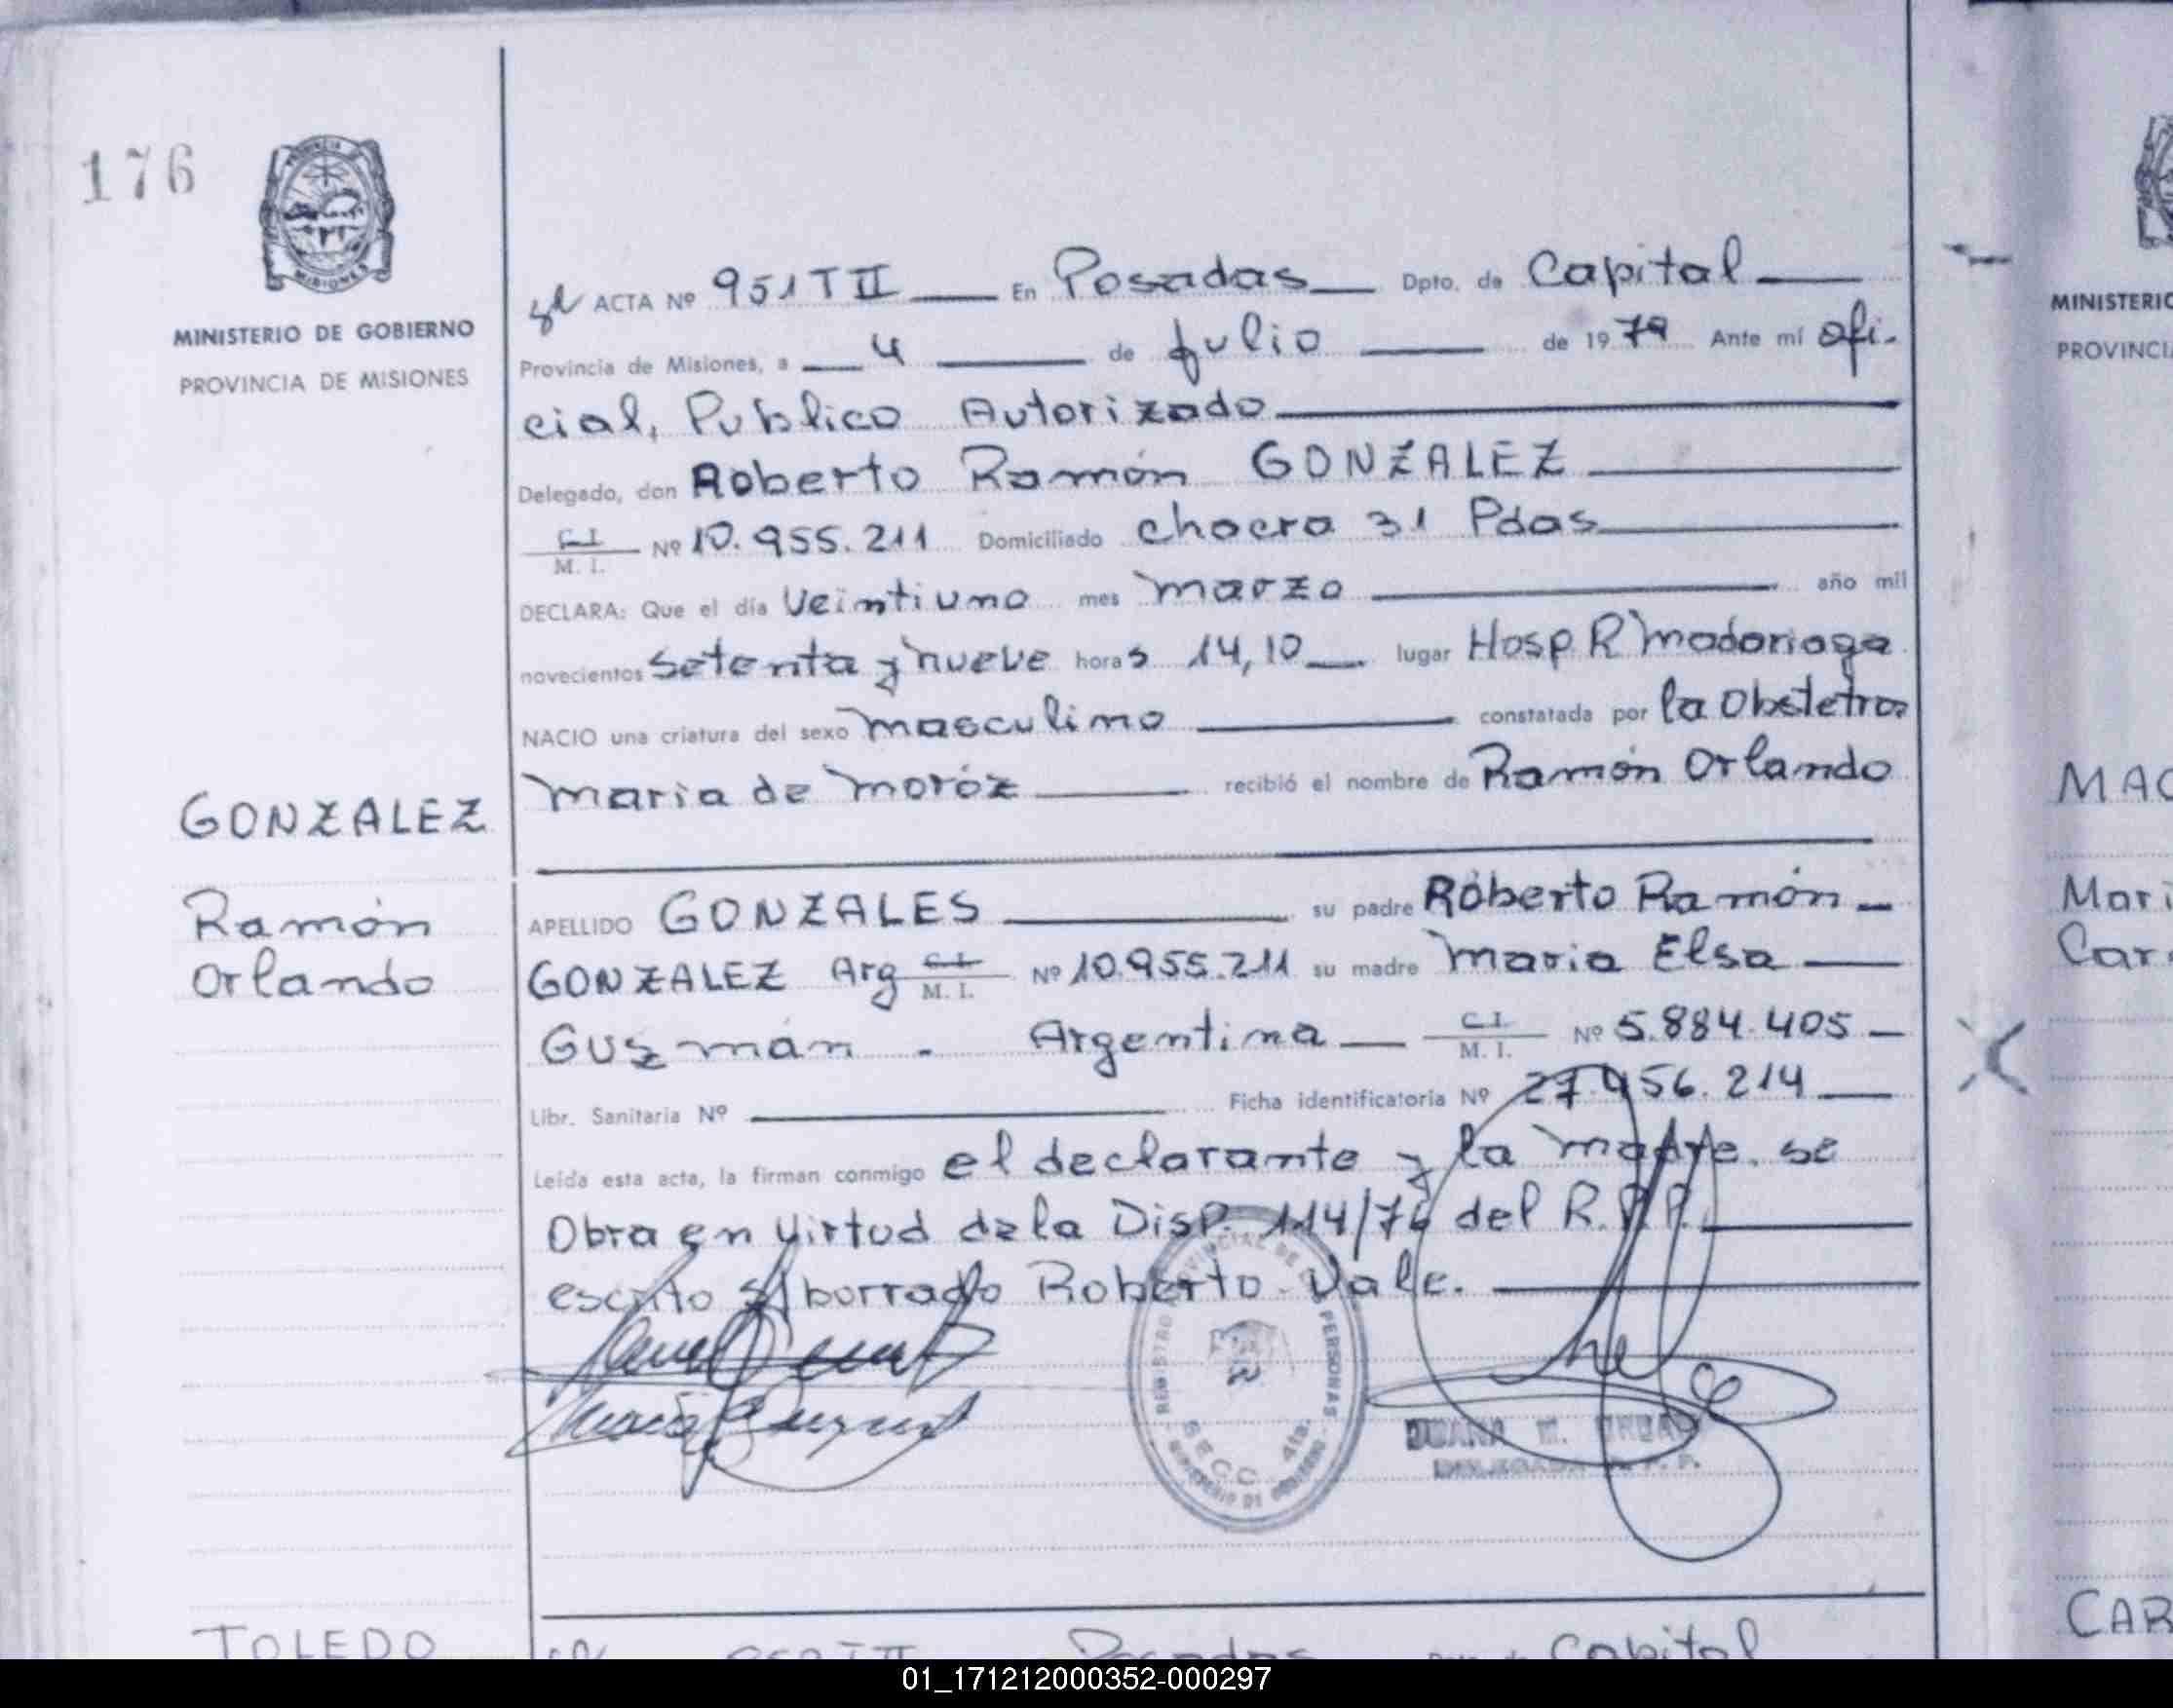 176
PROVINCIA DE
MISIONES
MINISTERIO DE GOBIERNO
PROVINCIA DE MISIONES
ACTA Nº 951 T II En Posadas Dpto. de Capital
Provincia de Misiones, a 4 de Julio de 1979 Ante mí ofi-
cial, Publico Autorizado
Delegado, don Roberto Ramón GONZALEZ
C.I. M. I. Nº 10.955.211 Domiciliado chacra 31 Pdas
DECLARA: Que el día Veintiuno mes marzo año mil
novecientos setenta y nueve horas 14,10 lugar Hosp R Madariaga
NACIO una criatura del sexo masculino constatada por la Obstetra
Maria de Moróz recibió el nombre de Ramón Orlando
GONZALEZ
Ramón
Orlando
APELLIDO GONZALES su padre Roberto Ramón
GONZALEZ Arg C.I. M. I. Nº 10.955.211 su madre Maria Elsa
Guzmán - Argentina C.I. M. I. Nº 5.884.405
Libr. Sanitaria Nº Ficha identificatoria Nº 27.456.214
Leída esta acta, la firman conmigo el declarante y la madre. se
Obra en virtud de la Disp. 114/76 del R.P.P.
escrito s/borrado Roberto. Vale.
REGISTRO PROVINCIAL DE LAS PERSONAS
SECC. 4ta.
MINISTERIO DE GOBIERNO
JUANA E.
DELEGADA R. P. P.
TOLEDO
Posadas Dpto. de Capital
MINISTERIO
PROVINCI
MAC
Mari
Car
CAR
01_171212000352-000297